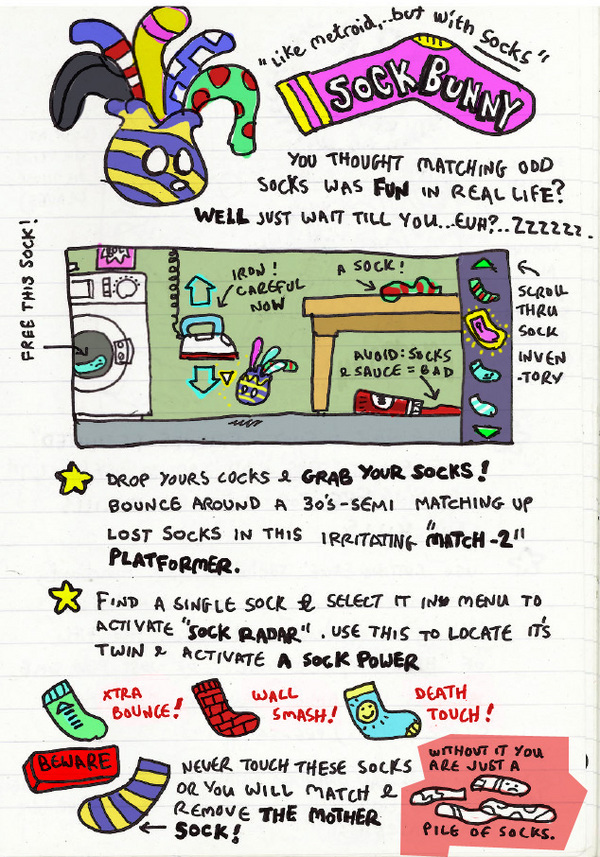 "Like metroid,..but with socks"
SOCK BUNNY
YOU THOUGHT MATCHING ODD
SOCKS WAS FUN IN REAL LIFE?
WELL JUST WAIT TILL YOU...EUH?..ZZZZZZ.
FREE THIS SOCK!
IRON!
CAREFUL
NOW
A SOCK!
AVOID: SOCKS
& SAUCE = BAD
SCROLL
THRU
SOCK
INVEN
-TORY
DROP YOURS COCKS & GRAB YOUR SOCKS!
BOUNCE AROUND A 30'S-SEMI MATCHING UP
LOST SOCKS IN THIS IRRITATING "MATCH-2"
PLATFORMER.
FIND A SINGLE SOCK & SELECT IT IN MENU TO
ACTIVATE "SOCK RADAR". USE THIS TO LOCATE IT'S
TWIN & ACTIVATE A SOCK POWER
XTRA
BOUNCE!
WALL
SMASH!
DEATH
TOUCH!
BEWARE
NEVER TOUCH THESE SOCKS
OR YOU WILL MATCH &
REMOVE THE MOTHER
SOCK!
WITHOUT IT YOU
ARE JUST A
PILE OF SOCKS.